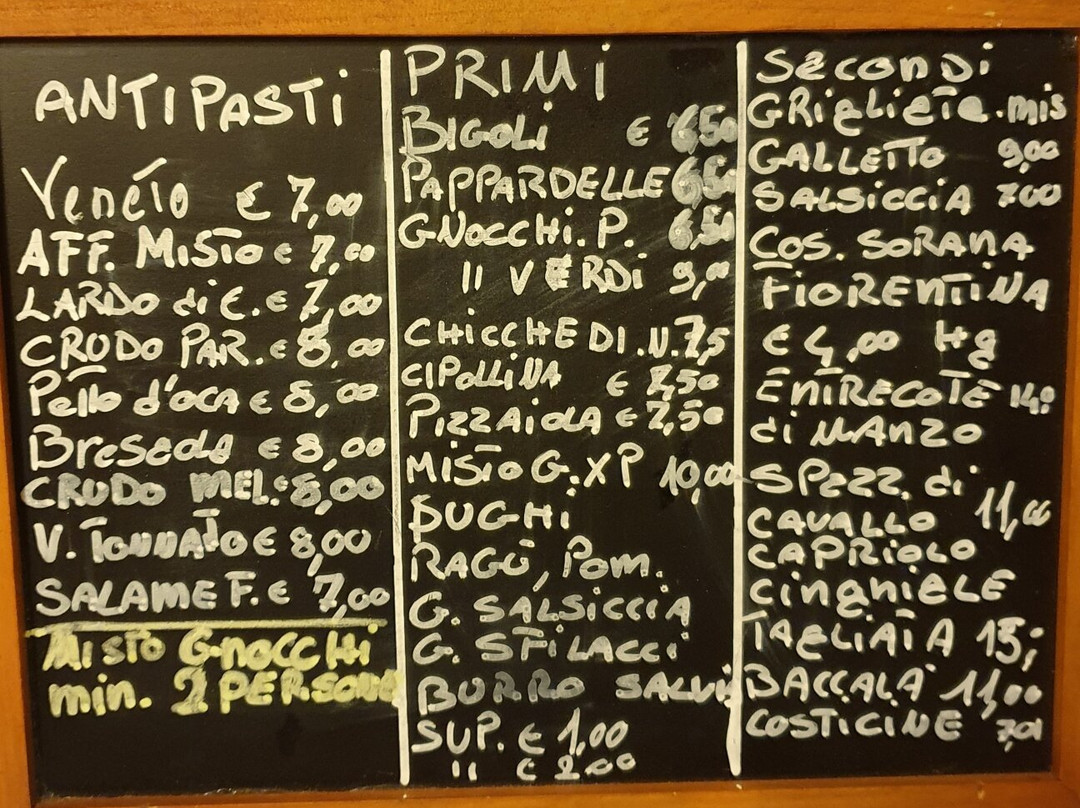 ANTIPASTI
Veneto € 7,00
AFF. MISTO € 7,00
LARDO di C. € 7,00
CRUDO PAR. € 8,00
Petto d'oca € 8,00
Bresaola € 8,00
CRUDO MEL. € 8,00
V. TONNATO € 8,00
SALAME F. € 7,00
MISTO GNOCCHI
min. 2 PERSONE
PRIMI
BIGOLI € 6,50
PAPPARDELLE 6,50
GNOCCHI. P. 6,50
" VERDI 9,00
CHICCHE DI .N. 7,5
CIPOLLINA € 7,50
PIZZAIOLA € 7,50
MISTO G. X P 10,00
DUGHI
RAGÙ, Pom.
G. SALSICCIA
G. SFILACCI
BURRO SALVIA
SUP. € 1,00
" € 2,00
SECONDI
GRIGLIATA. MIS
GALLETTO 9,00
SALSICCIA 7,00
COS. SORANA
FIORENTINA
€ 4,00 Hg
ENTRECOTE 14,0
di MANZO
SPEZZ. di
CAVALLO 11,00
CAPRIOLO
CINGHIALE
TAGLIATA 15,
BACCALÀ 11,00
COSTICINE 7,00